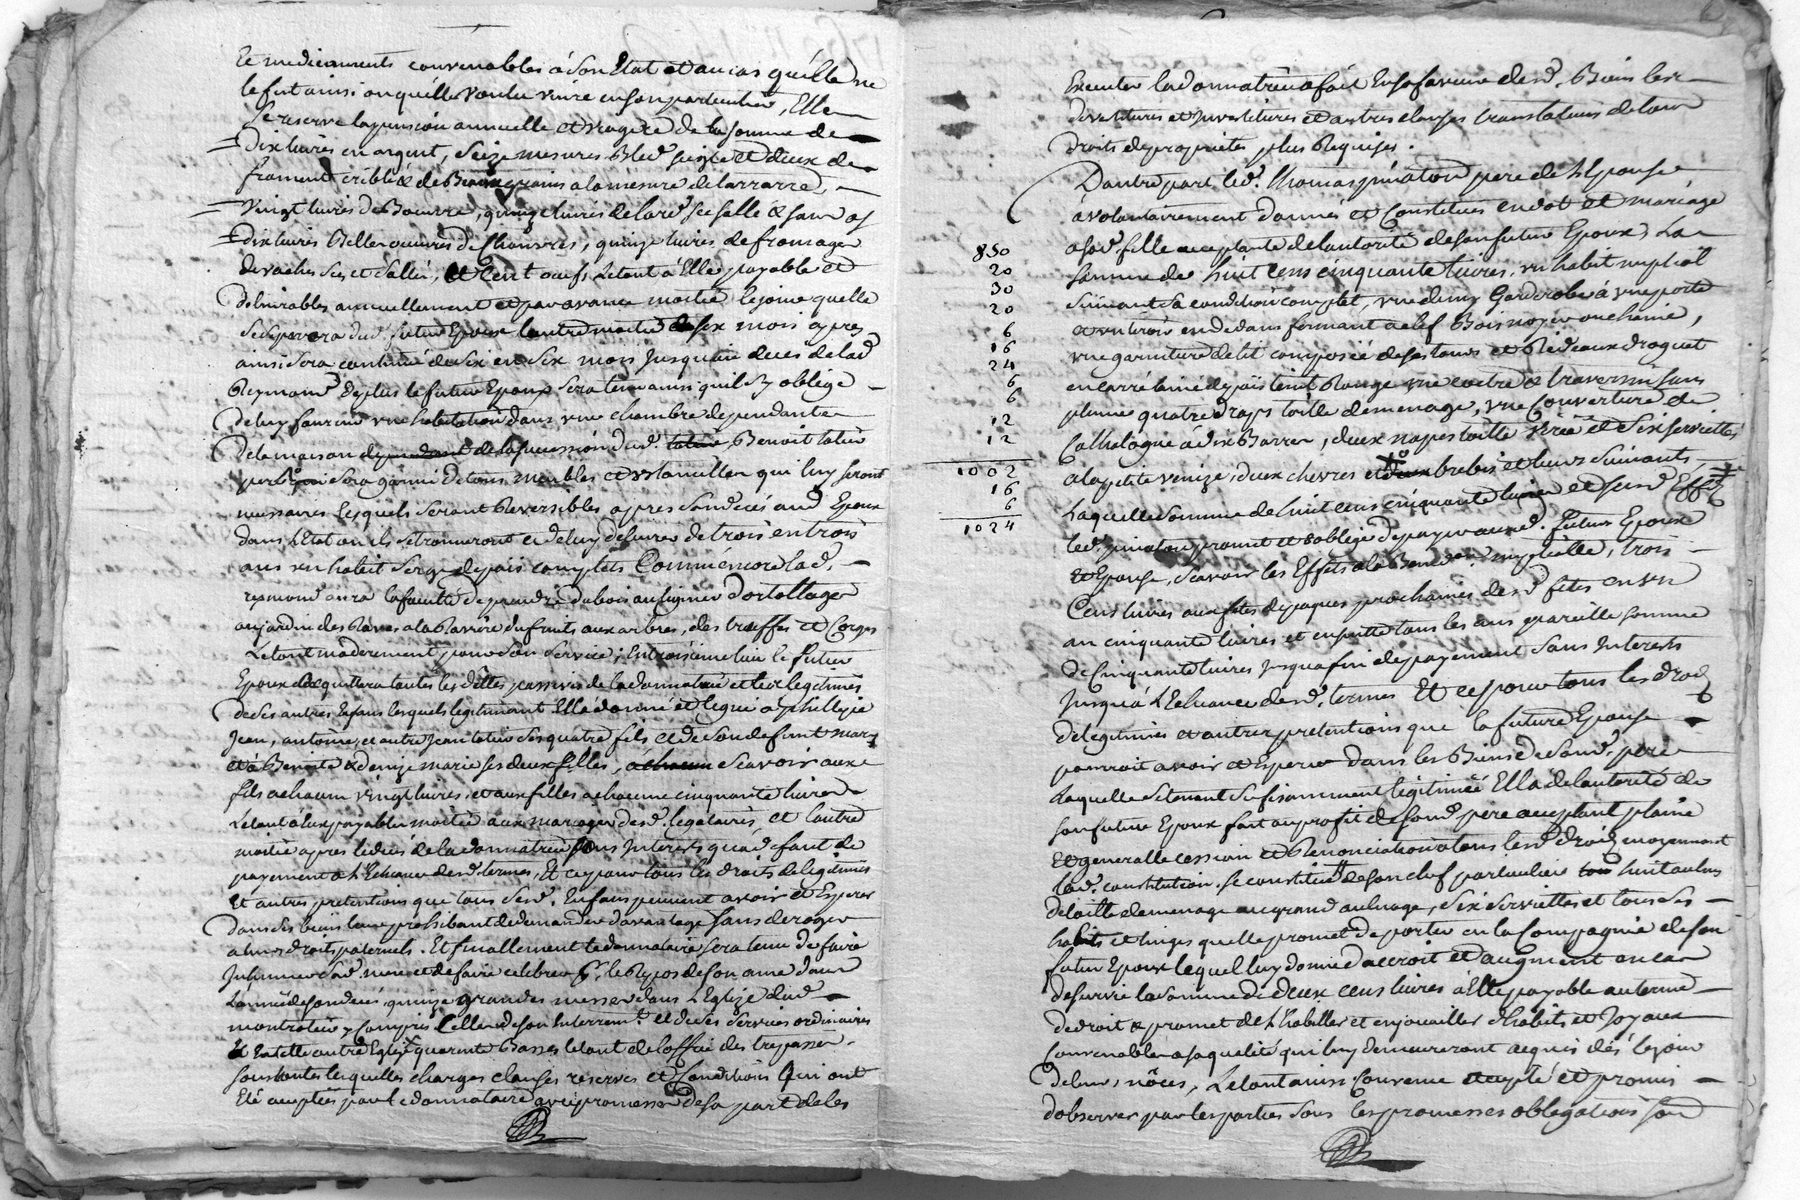 Et medicaments convenables à son Etat et au cas qu'elle ne
le fut ainsi ou quelle voulu vivre en son particulier, Elle
se reserve la pension annuelle et viagere de la somme de
Dix livres en argent, seize mesures Bled seigle et deux de
froment criblé & de Beaux grains a la mesure de
vingt livres de Beurre, quinze livres de lard sec sallé & sans os
dix livres Belle oeuvres de Chanvres, quinze livres de fromage
de vaches sec et sallé, et Cent oeufs, Letout à Elle payable et
delivrables annuellement et par avance moitié le jour quelle
se separera dud. futur Epoux l'autre moitié six mois apres
ainsi sera continué de six en six mois jusqu'au deces de lad.
Reymond De plus le futur Epoux sera tenu ainsi quil sy oblige
de luy fournir une habitation dans une chambre dependante
De la maison de la succession dud. Benoit
sera garnie de tous meubles et ustancilles qui luy seront
necessaires lesquels seront Reversibles apres son deces aud. Epoux
dans l'Etat ou ils se trouveront et de luy delivrer de trois en trois
ans un habit serge de païs complets Comme encore lad.
reymond aura la faculté de prendre du bois au d'ortollages
au jardin des Raves a la Raviere du fruits aux arbres, des truffes et Corges
Letout moderement pour son service; En troisieme lieu le futur
Epoux acquittera toutes les dettes passives de la donnatrice et les legitimes
de ses autres Enfans lesquels legitimant Elle donne et legue a phillippe
Jean, antoine, et autre Jean ses quatre fils et de son defunt mary
et à Benoite & denize marie ses deux filles, scavoir aux
fils a chacun vingt livres, et aux filles a chacune cinquante livres
Letout à Eux payable moitié aux mariages desd. legataires, et l'autre
moitié apres le deces de la donnatrice sans Interests qu'a defaut de
payement a l'Echeance desd. termes, Et ce pour tous les droits de legitimes
Et autres pretentions que tous sesd. Enfans peuvent avoir et Esperer
Dans ses biens leur prohibant de demander davantage sans deroger
a leurs droits paternels. Et finallement le donnataire sera tenu de faire
Inhumer sad. mere et de faire celebrer pr. le Repos de son ame dans
L'année de son deces, quinze grandes messes dans l'Eglize dud.
y Compris Celles de son Enterremt. et de ses services ordinaires
Et En telle autre Eglize quarente Basses Letout de l'office des trepassez.
sous toutes lesquelles charges clauses reserves et Conditions qui ont
Eté acceptées par le donnataire avec promesses de sa part de les
Executer la donnatrice a fait En sa faveur desd. Biens les
devetitures et Investitures et autres clauses translatives de tous
Droits de proprietés plus Requises.
D'autre part led. Thomas pere de l'Epouse
à volontairement donné et Constitué en dot et mariage
a sad. fille acceptante de l'autorité de son futur Epoux, La
somme de huit cens cinquante livres, un habit nuptial
Suivant sa condition complet, une demy Garderobe à une porte
et un tiroir en dedans fermant a clef Bois noyer ou chaine,
une garniture de lit composée de ses tours et Rideaux droguet
en carré laine de païs teint Rouge une coetre & traversin sans
plume quatre draps toille de menage, une Couverture de
Cathalogne à dix Barres, deux nappes toille et six serviettes
a la petite venize, deux chevres et brebis et leurs suivants,
Laquelle somme de huit cens cinquante livres et susd. Effets
led. promet et s'oblige de payer auxd. futurs Epoux
et Epouse, Scavoir les Effets a la Benediction nuptialle, trois
Cens livres aux fetes de paques prochaines desd. fetes en un
an cinquante livres et ensuitte tous les ans pareille somme
de Cinquante livres jusqu'a fin de payement sans Interests
Jusqu'à l'Echeance desd. termes Et ce pour tous les droits
de legitimes et autres pretentions que la future Epouse
pourroit avoir et Esperer dans les Biens de sond. pere
Laquelle se tenant sufisamment legitimée Elle de l'autorité de
son futur Epoux fait au profit de sond. pere acceptant plaine
Et generalle cession et Renonciation a tous lesd. droits moyennant
lad. constitution. Se constitue de son chef particulier huit aulnes
de toille de menage au grand aulnage, six serviettes et tous ses
habits et linges quelle promet de porter en la Compagnie de son
futur Epoux lequel luy donne d'accroit et d'augment en cas
de survie la somme de deux cens livres à Elle payable au terme
de droit & promet de l'habiller et enjoailler d'habits et Joyaux
Convenables a sa qualité qui luy demeureront acquis dès le jour
de leurs nôces, Letout ainsi Convenu accepté et promis
d'observer par les parties sous les promesses obligations sous
850
20
30
20
6
16
24
6
6
12
12
1002
16
6
1024